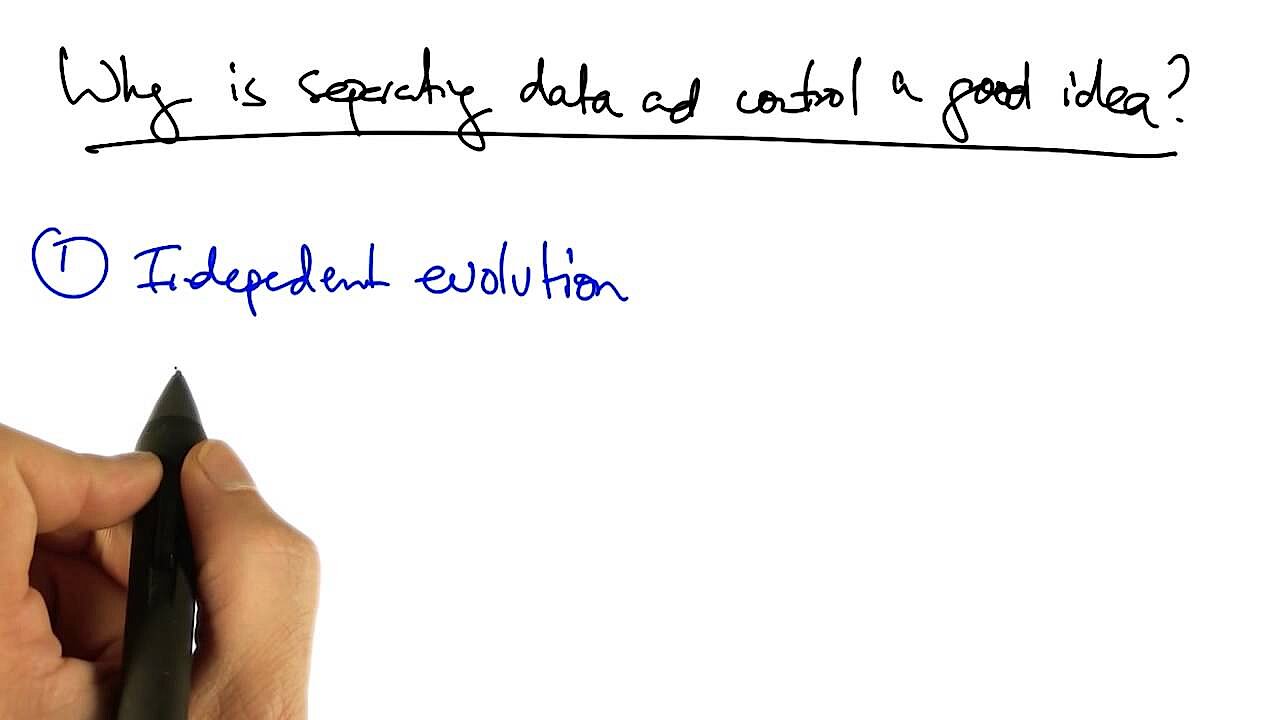 Why is separating data ad control a good idea?
① Indepedent evolution